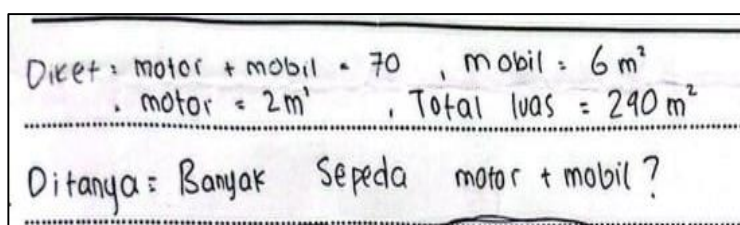 Diket : motor + mobil = 70 , mobil = 6 m²
. motor = 2 m¹ , Total luas = 290 m²
Ditanya = Banyak Sepeda motor + mobil ?